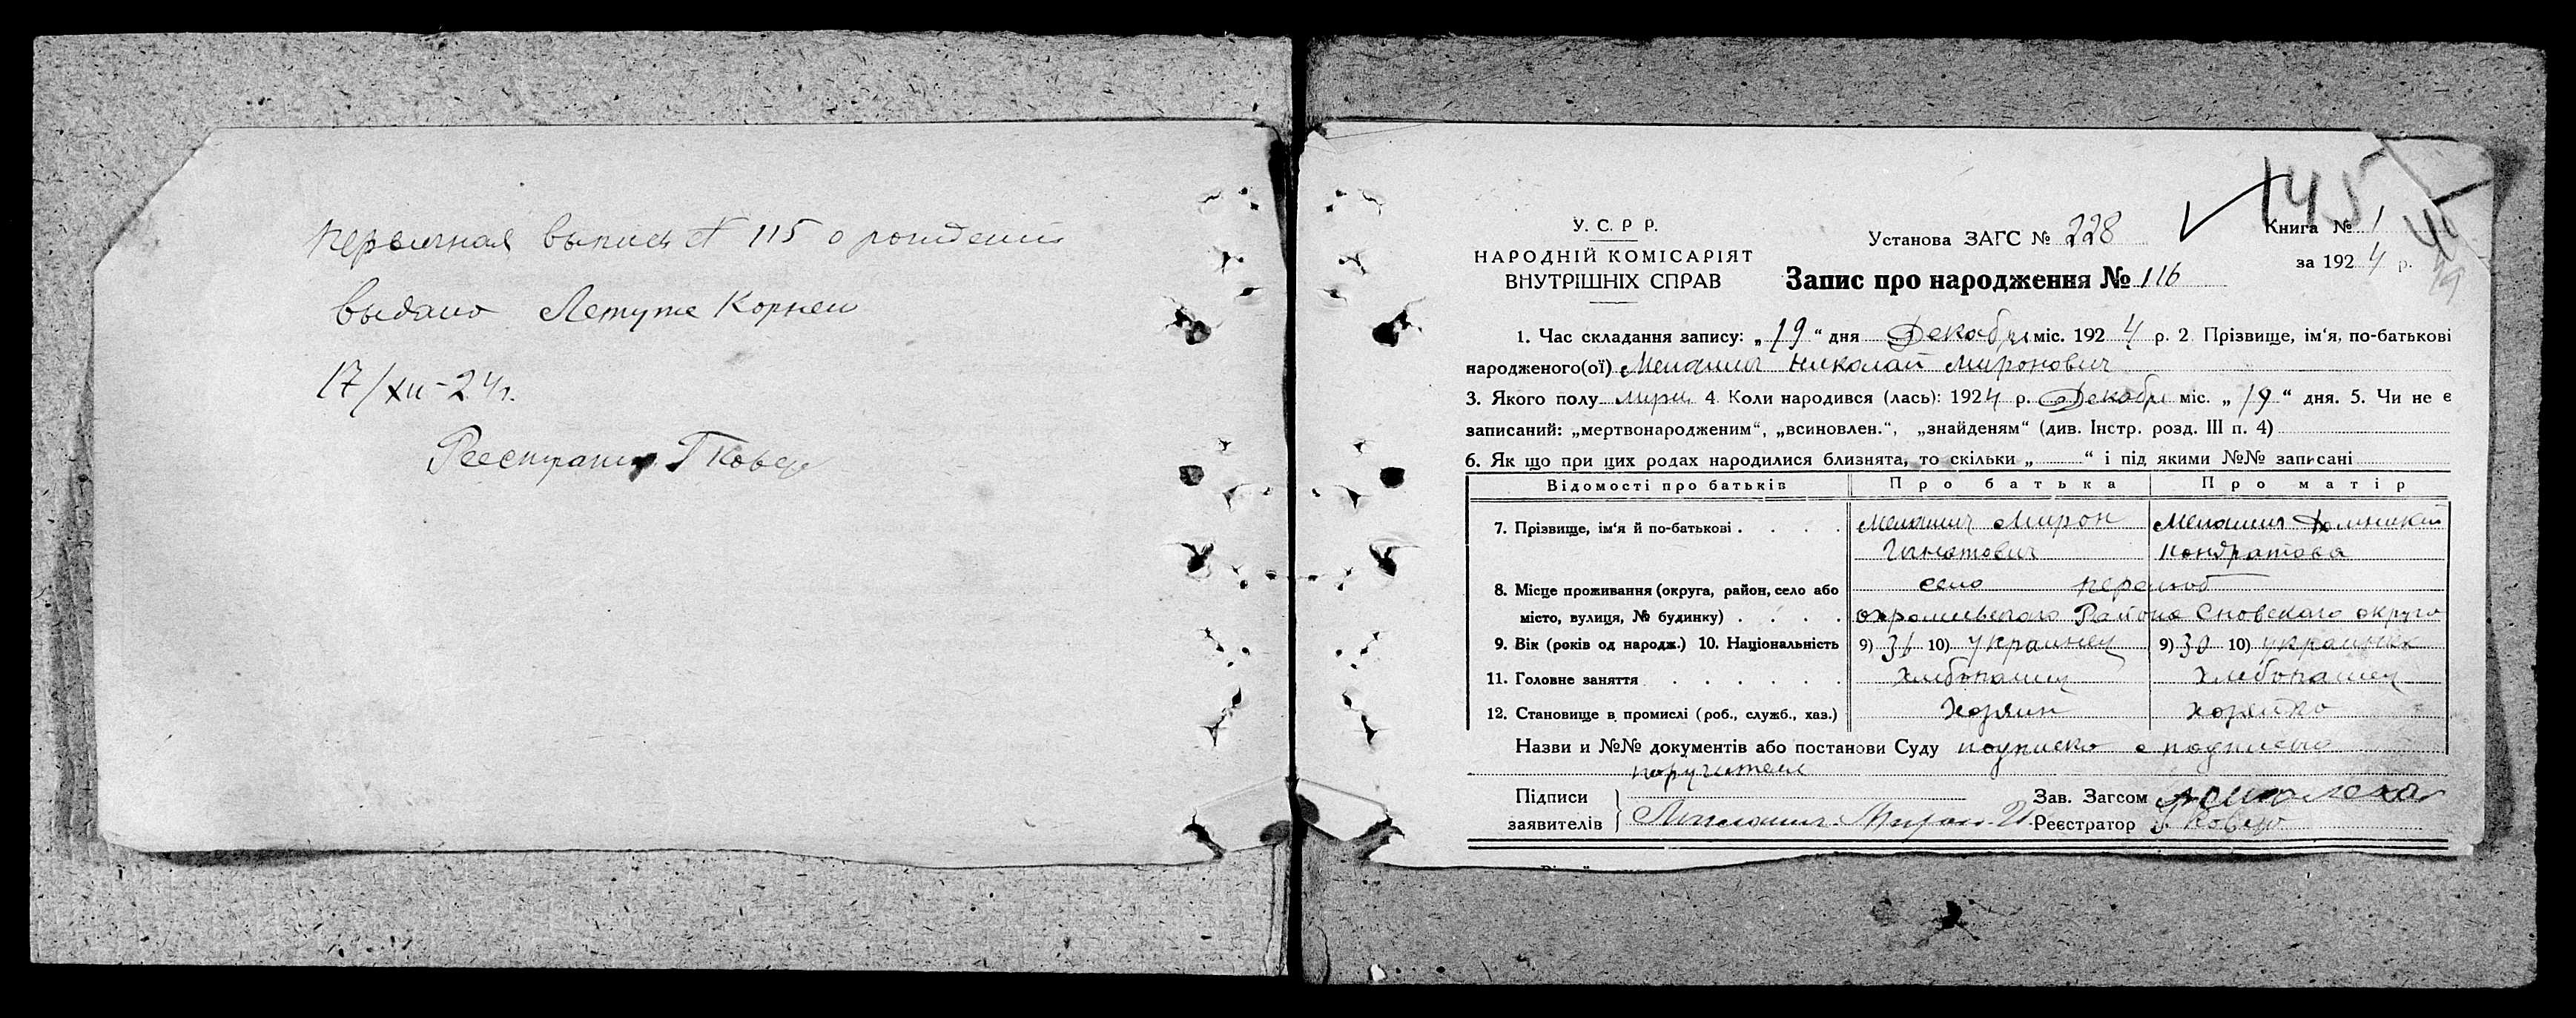 Первичная выпись № 115 о рождении
выдана Летуте Корнею
17/XII-24г.
Реестратор Г Ковер
145
У. С. Р. Р.
НАРОДНІЙ КОМІСАРІЯТ
ВНУТРІШНІХ СПРАВ
Установа ЗАГС № 228
Книга № 1
40
за 1924 р.
Запис про народження № 116
1. Час складання запису: „19“ дня Декабря міс. 1924 р. 2. Прізвище, ім‘я, по-батькові
народженого(ої) Мелашич Николай Миронович
3. Якого полу мужи 4 Коли народився (лась): 1924 р. Декабря міс. „19“ дня. 5. Чи не є
записаний: „мертвонародженим“, „всиновлен.“, „знайденям“ (див. Інстр. розд. III п. 4)
6. Як що при цих родах народилися близнята, то скільки „ “ і під якими №№ записані
Відомості про батьків Про батька Про матір
7. Прізвище, ім‘я й по-батькові Мелашич Мирон Мелашич
Игнатович Кондратова
8. Місце проживання (округа, район, село або село Перелюб
місто, вулиця, № будинку) Района Сновского округа
9. Вік (років од народж.) 10. Національність 9) 31 10) украинец 9) 30 10) украинка
11. Головне заняття хлебопашец хлебопашец
12. Становище в промислі (роб., служб., хаз.) хозяин хозяйка
Назви и №№ документів або постанови Суду подписка с подписью
поручителя
Підписи Зав. Загсом
заявителів Мелашич Мирон И. Реєстратор Г. Ковер